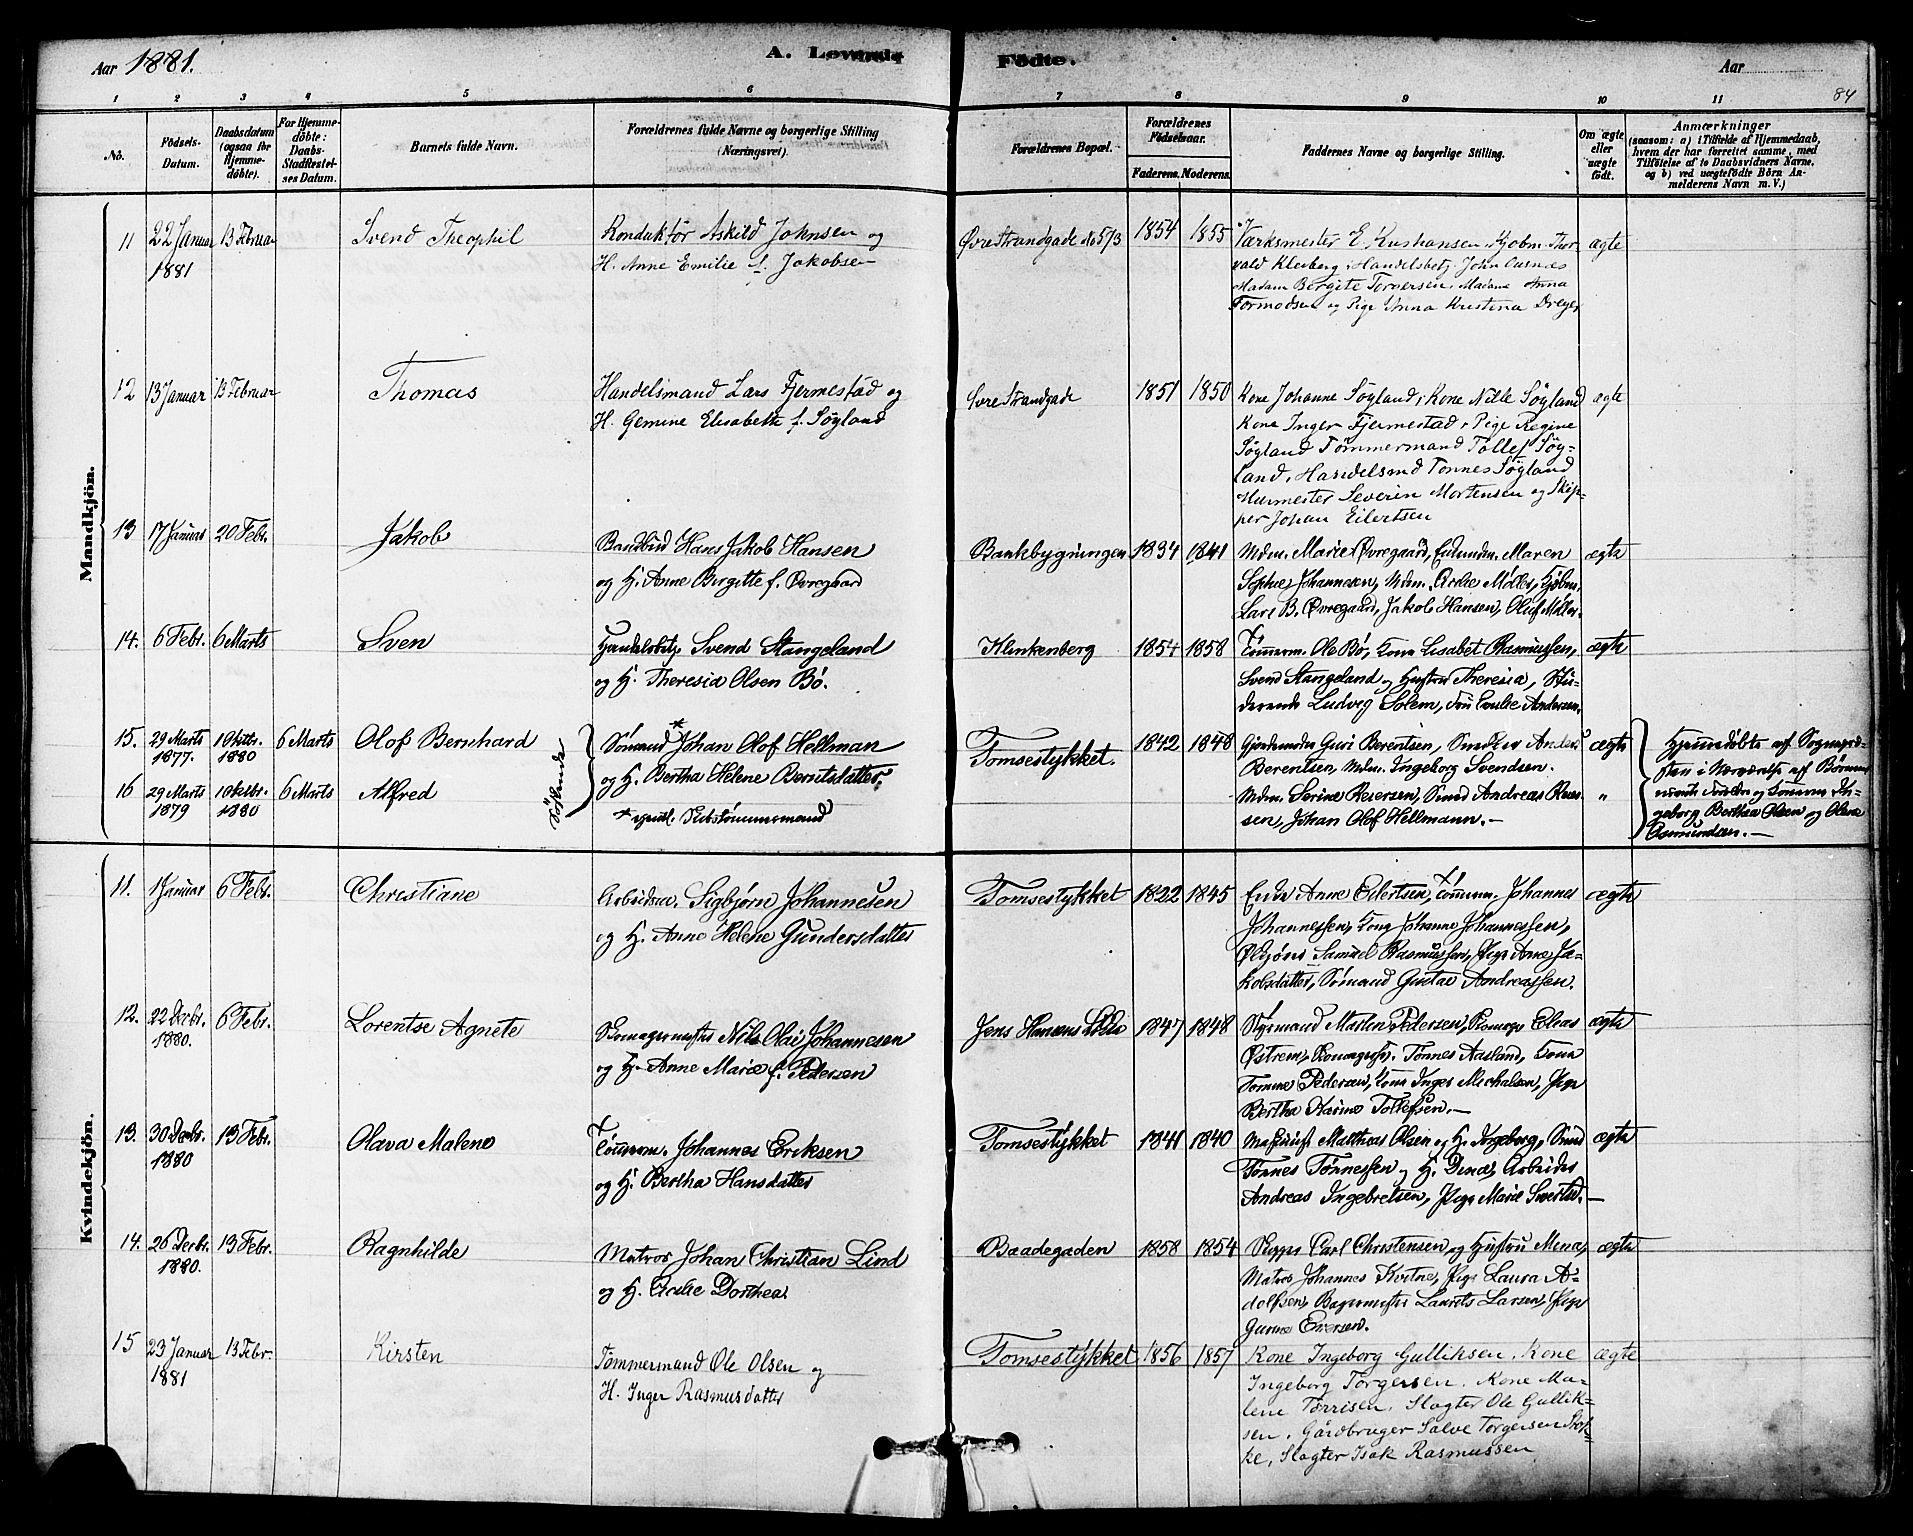 Aar 1881.
A. Levende
Födte.
Aar
84
1 2 3 4 5 6 7 8 9 10 11
No.
Födsels-Datum.
Daabsdatum (ogsaa for Hjemme-döbte).
For Hjemme-döbte: Daabs-Stadfæstel-ses Datum.
Barnets fulde Navn.
Forældrenes fulde Navne og borgerlige Stilling (Næringsvei).
Forældrenes Bopæl.
Forældrenes Födselsaar.
Faderens. Moderens.
Faddernes Navne og borgerlige Stilling.
Om ægte eller uægte födt.
Anmærkninger
(saasom: a) i Tilfælde af Hjemmedaab, hvem der har forrettet samme, med Tilföielse af to Daabsvidners Navne, og b) ved uægtefödte Börn An-melderens Navn m. V.)
Mandkjön.
11 22 Januar 1881 13 Februar Svend Theophil
Konduktör Askild Johnsen og
H. Anne Emilie f. Jakobsen
Øvre Strandgade No 573 1854 1855
Værksmester E. Kushansen, Kjøbm. Thor-
vald Kleiberg, Handelsbetj. John Aasnæs
Madam Bergite Torversen, Madame Anna
Tormodsen og Pige Anna Kristina Dreyer
ægte
12 13 Januar 13 Februar Thomas
Handelsmand Lars Fjermestad og
H. Gemine Elisabeth f. Søyland
Øvre Strandgade 1851 1850
Kone Johanne Søyland, Kone Nille Søyland
Kone Inger Fjermestad, Pige Regine
Søyland Tømmermand Tollef Søy-
land, Handelsmd Tønnes Søyland
Murmester Severin Mortensen og Skip-
per Johan Eilertsen
ægte
13 17 Januar 20 Febr. Jakob
Bandbud Hans Jakob Hansen
og H. Anne Birgitte f. Øvregaard
Bankbygningen 1834 1841
Mdm. Marie Øvregaard, Enkemdm. Maren
Sophie Johannesen, Mdm. Møller, Kjøbm.
Lars B. Øvregaard, Jakob Hansen, Oluf Møller.
ægte
14. 6 Febr. 6 Marts Sven
Handelsbetj. Svend Stangeland
og H. Theresia Olsen Bö.
Klinkenberg 1854 1858
Tömmerm. Ole Bö, Kone Lisabet Rasmussen,
Svend Stangeland og Hustru Theresia, Stu-
derende Ludvig Solem, Fru Emilie Andersen.
ægte
15. 29 Marts 1877. 1 Oktbr. 1880 6 Marts Olof Bernhard
16 29 Marts 1879 1 Oktbr. 1880 6 Marts Alfred
Söskende
Sömand * Johan Olof Hellman
og H. Bertha Helene Berntsdatter.
* egentl. Skibstömmermand
Tomsestykket. 1842 1848
Gjordemoder Guri Berentsen, Smed Anders
Berentsen, Mdm. Ingeborg Svendsen.
Mdm. Serine Resersen, Smed Andreas Reser-
sen, Johan Olof Hellmann. —
ægte
"
Hjemmedöbte af Sognepræ-
sten i Nærværelse af
Ingeborg Bertha Olsen og Olene
Osmundsen. —
Kvindekjön.
11. 1 Januar 6 Febr. Christiane
Arbeidsm. Sigbjörn Johannesen
og H. Anne Helene Gundersdatter
Tomsestykket 1822 1845
Enke Anne Eilertsen, Tömmerm. Johannes
Johannessen, Kone Johanne Johannessen,
Samuel Rasmussen, Pige Anne Ja-
kobsdatter, Sömand Gustav Andreassen.
ægte
12. 22 Decbr. 1880. 6 Febr. Lorentse Agnete
Skomagermester Nils Olai Johannesen
og H. Anne Marie f. Pedersen
Jens Hansens 1847 1848
Styrmand Marten Pedersen, Skomager Elias
Östrem, Skomagersv. Tönnes Aasland, Kone
Tomine Pedersen, Kone Inger Michalsen, Pige
Bertha Karine Tollefsen. —
ægte
13. 30 Decbr. 1880 13 Febr. Olava Malene
Tömmerm. Johannes Eriksen
og H. Bertha Hansdatter
Tomsestykket 1841 1840
Maskinist Matthias Olsen og H. Ingeborg, Smed
Tönnes Tönnessen og H. Dina, Arbeider
Andreas Ingebretsen, Pige Marie —
ægte
14. 26 Decbr. 1880. 13 Febr. Ragnhilde
Matros Johan Christian Lind
og H. Cecilie Dorthea
Baadegaden 1858 1854
Skipper Carl Christensen og Hustru Mena,
Matros Johannes Kvitne, Pige Laura A-
dolfsen, Bagermester Laurits Larsen, Pige
Gurine Eversen.
ægte
15 23 Januar 1881 13 Febr. Kirsten
Tømmermand Ole Olsen og
H. Inger Rasmusdatter
Tomsestykket 1856 1857
Kone Ingeborg Gulliksen, Kone
Ingeborg Torgersen, Kone Ma-
lene Tørrisen, Slagter Ole Gullik-
sen, Gårdbruger Salve Torgersen Stok-
ke, Slagter Isak Rasmussen
ægte